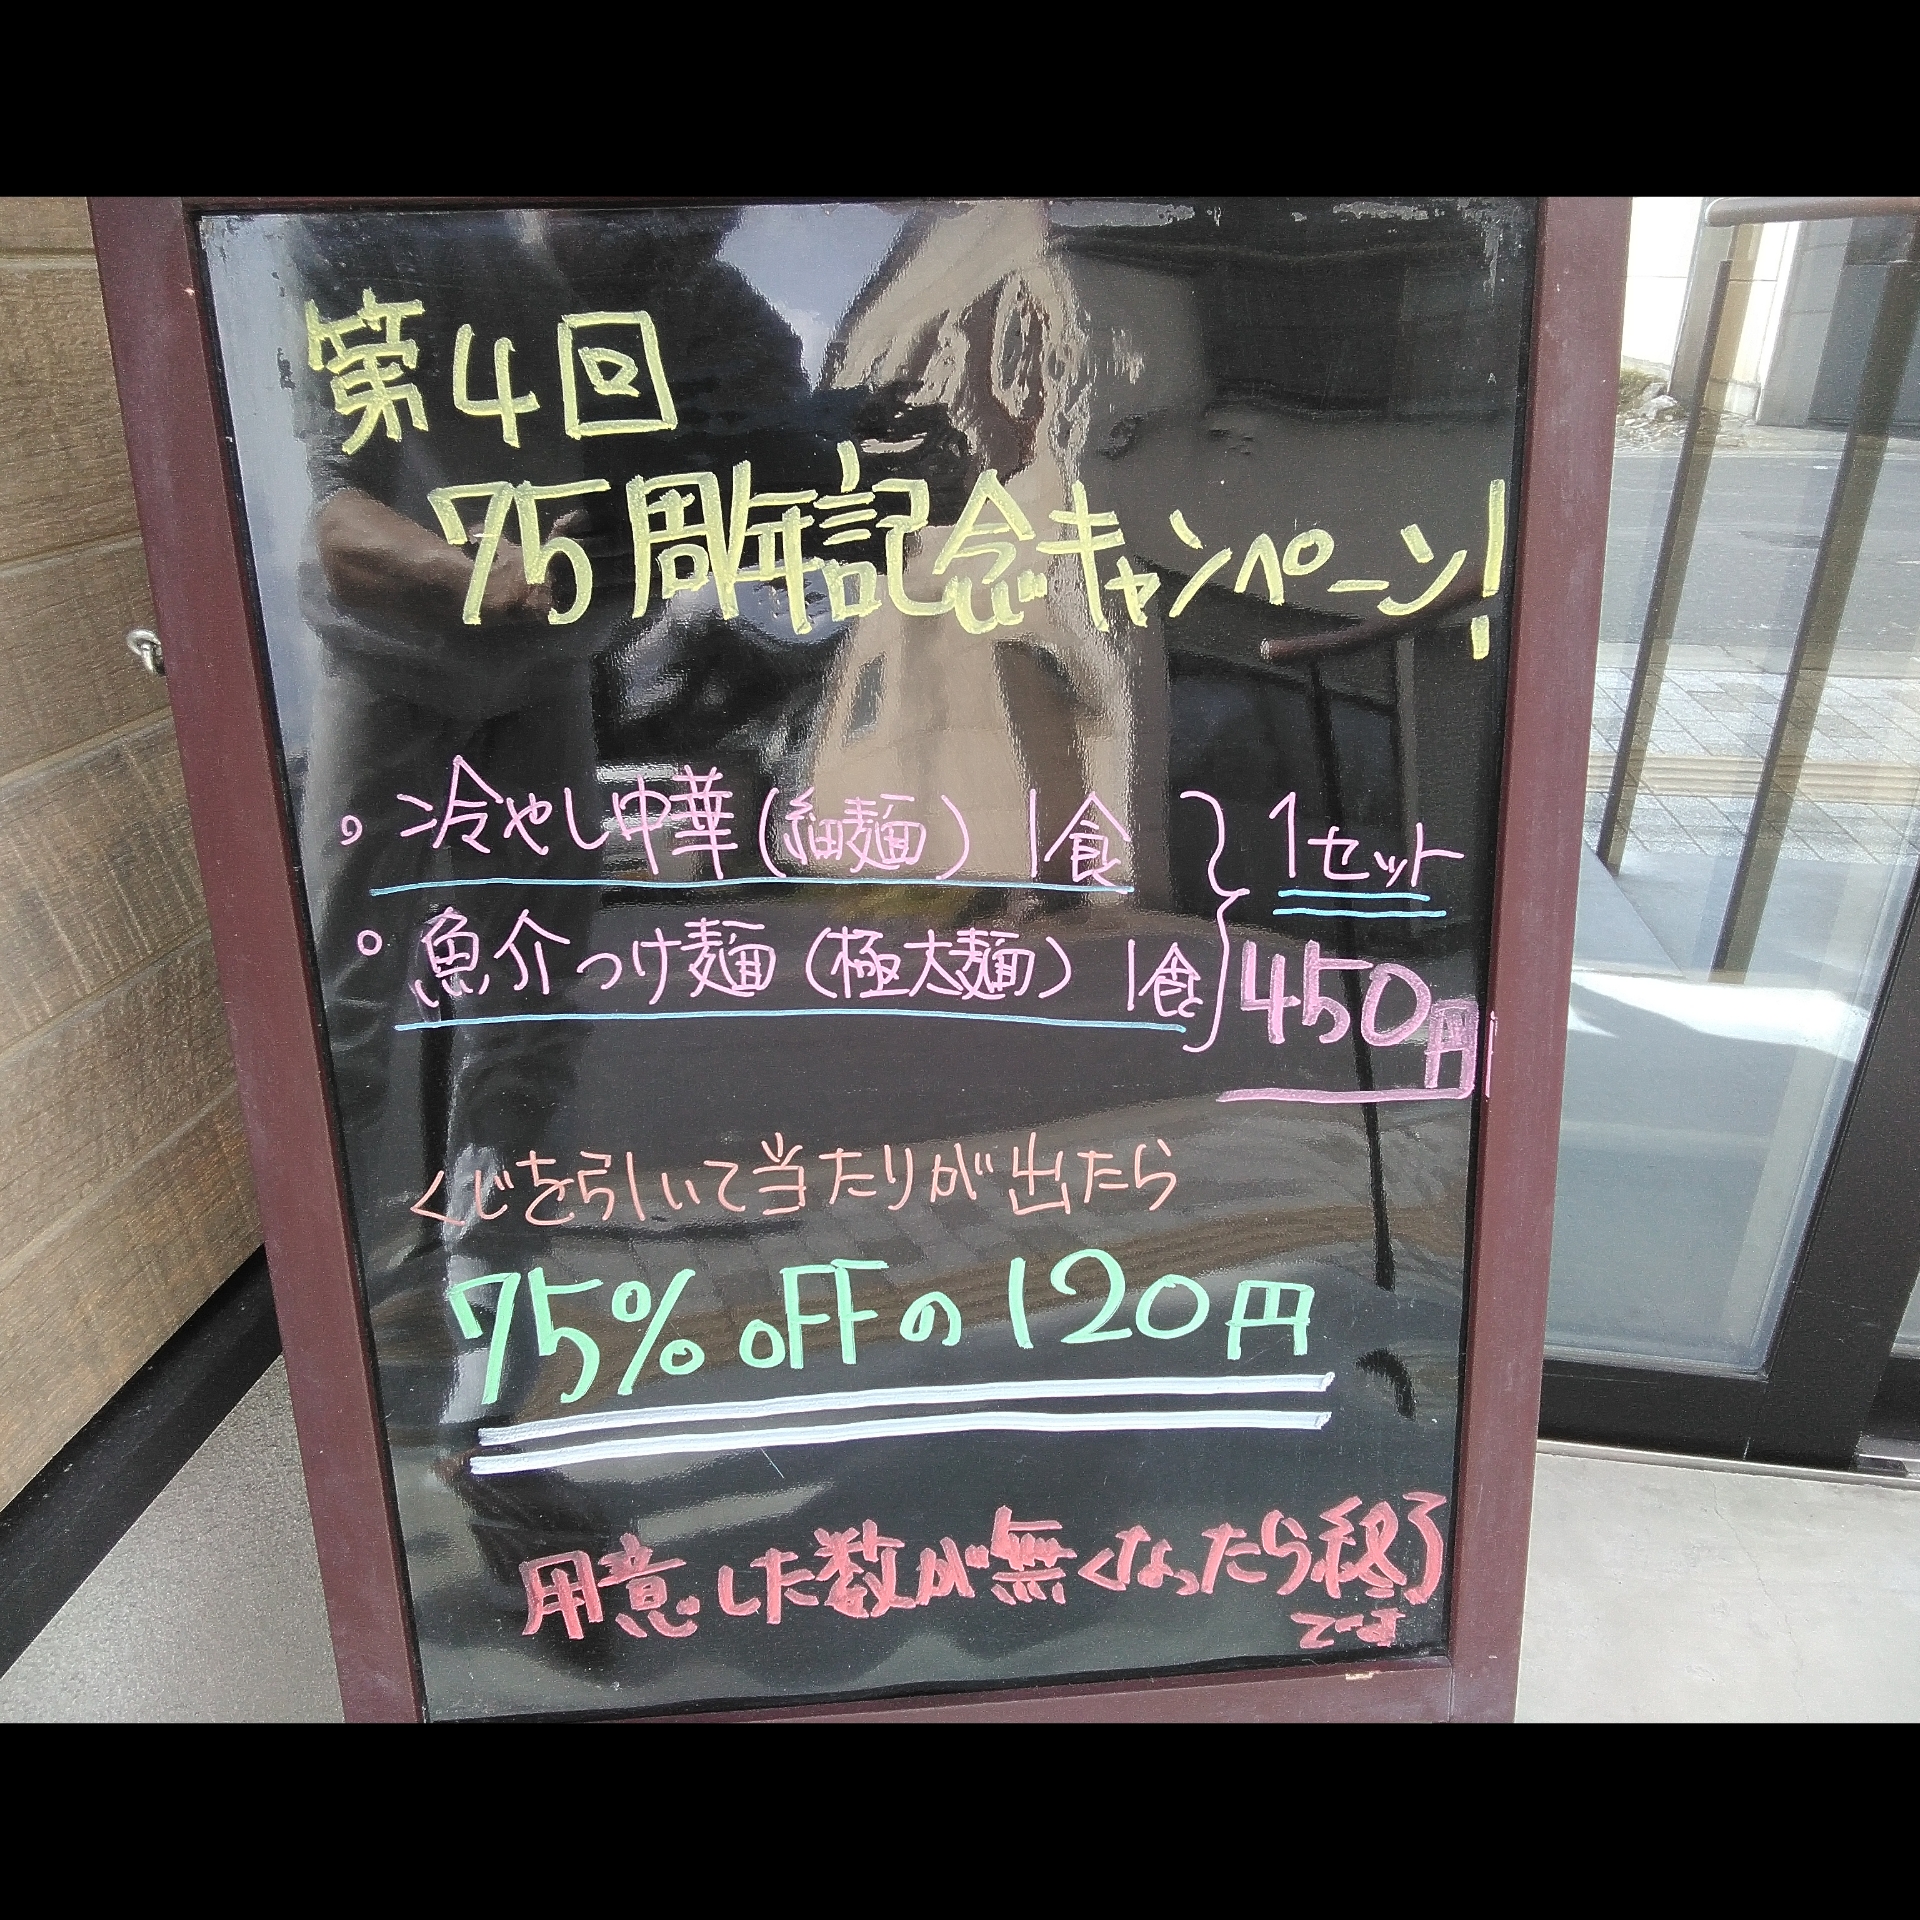 第4回
75周年記念キャンペーン!
。冷やし中華(細麺) 1食
。魚介つけ麺(極太麺) 1食
1セット
450円
くじを引いて当たりが出たら
75%OFFの120円
用意した数が無くなったら終了
です